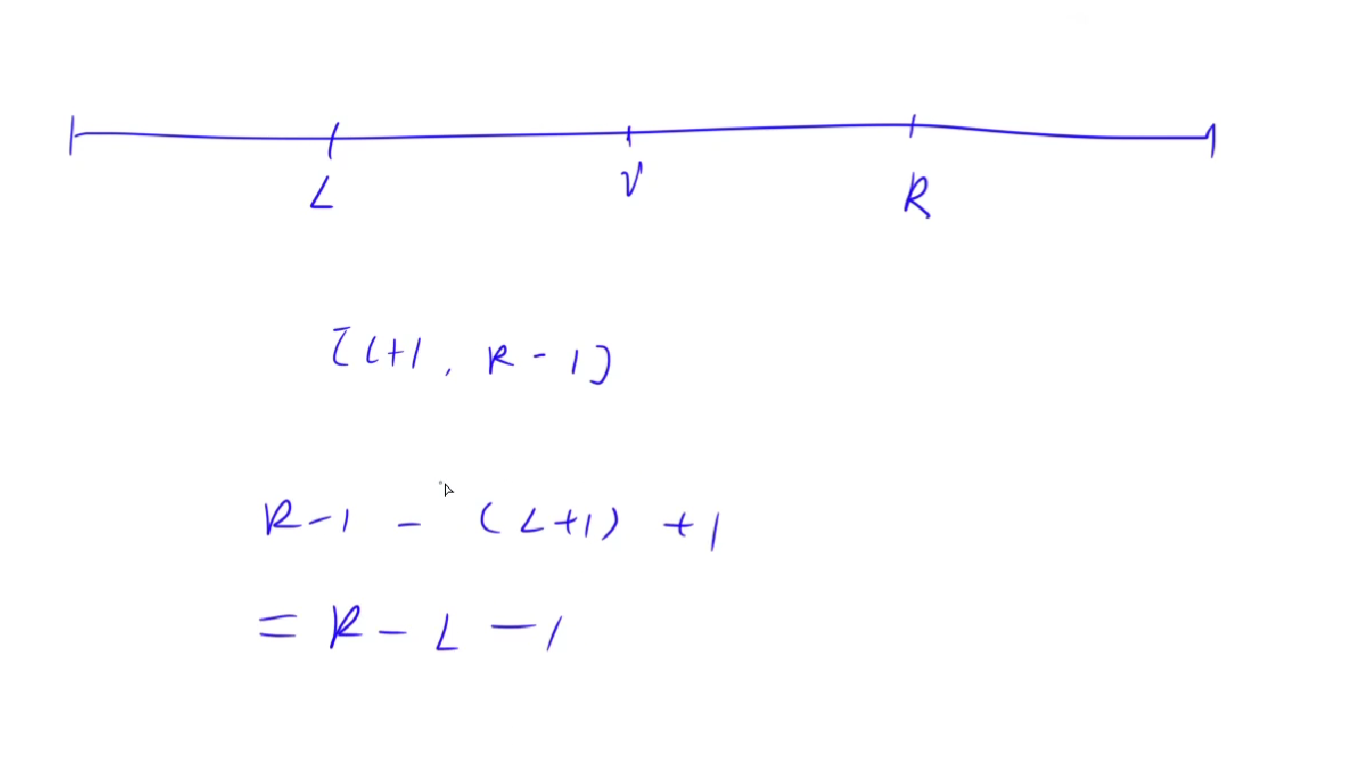 L V R
[L+1, R-1]
R-1 - (L+1) +1
= R-L-1